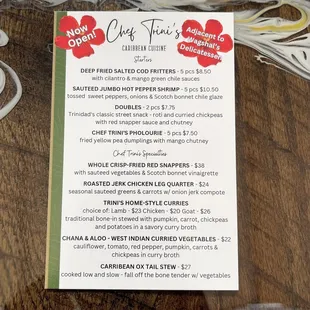 Now
Open!
Chef Trini's
CARIBBEAN CUISINE
Adjacent to
Wagshal's
Delicatessen
Starters
DEEP FRIED SALTED COD FRITTERS - 5 pcs $8.50
with cilantro & mango green chile sauces
SAUTEED JUMBO HOT PEPPER SHRIMP - 5 pcs $10.50
tossed sweet peppers, onions & Scotch bonnet chile glaze
DOUBLES - 2 pcs $7.75
Trinidad's classic street snack - roti and curried chickpeas
with red snapper sauce and chutney
CHEF TRINI'S PHOLOURIE - 5 pcs $7.50
fried yellow pea dumplings with mango chutney
Chef Trini's Specialties
WHOLE CRISP-FRIED RED SNAPPERS - $38
with sauteed vegetables & Scotch bonnet vinaigrette
ROASTED JERK CHICKEN LEG QUARTER - $24
seasonal sauteed greens & carrots w/ onion jerk compote
TRINI'S HOME-STYLE CURRIES
choice of: Lamb - $23 Chicken - $20 Goat - $26
traditional bone-in stewed with pumpkin, carrot, chickpeas
and potatoes in a savory curry broth
CHANA & ALOO - WEST INDIAN CURRIED VEGETABLES - $22
cauliflower, tomato, red pepper, pumpkin, carrots &
chickpeas in curry broth
CARRIBEAN OX TAIL STEW - $27
cooked low and slow - fall off the bone tender w/ vegetables